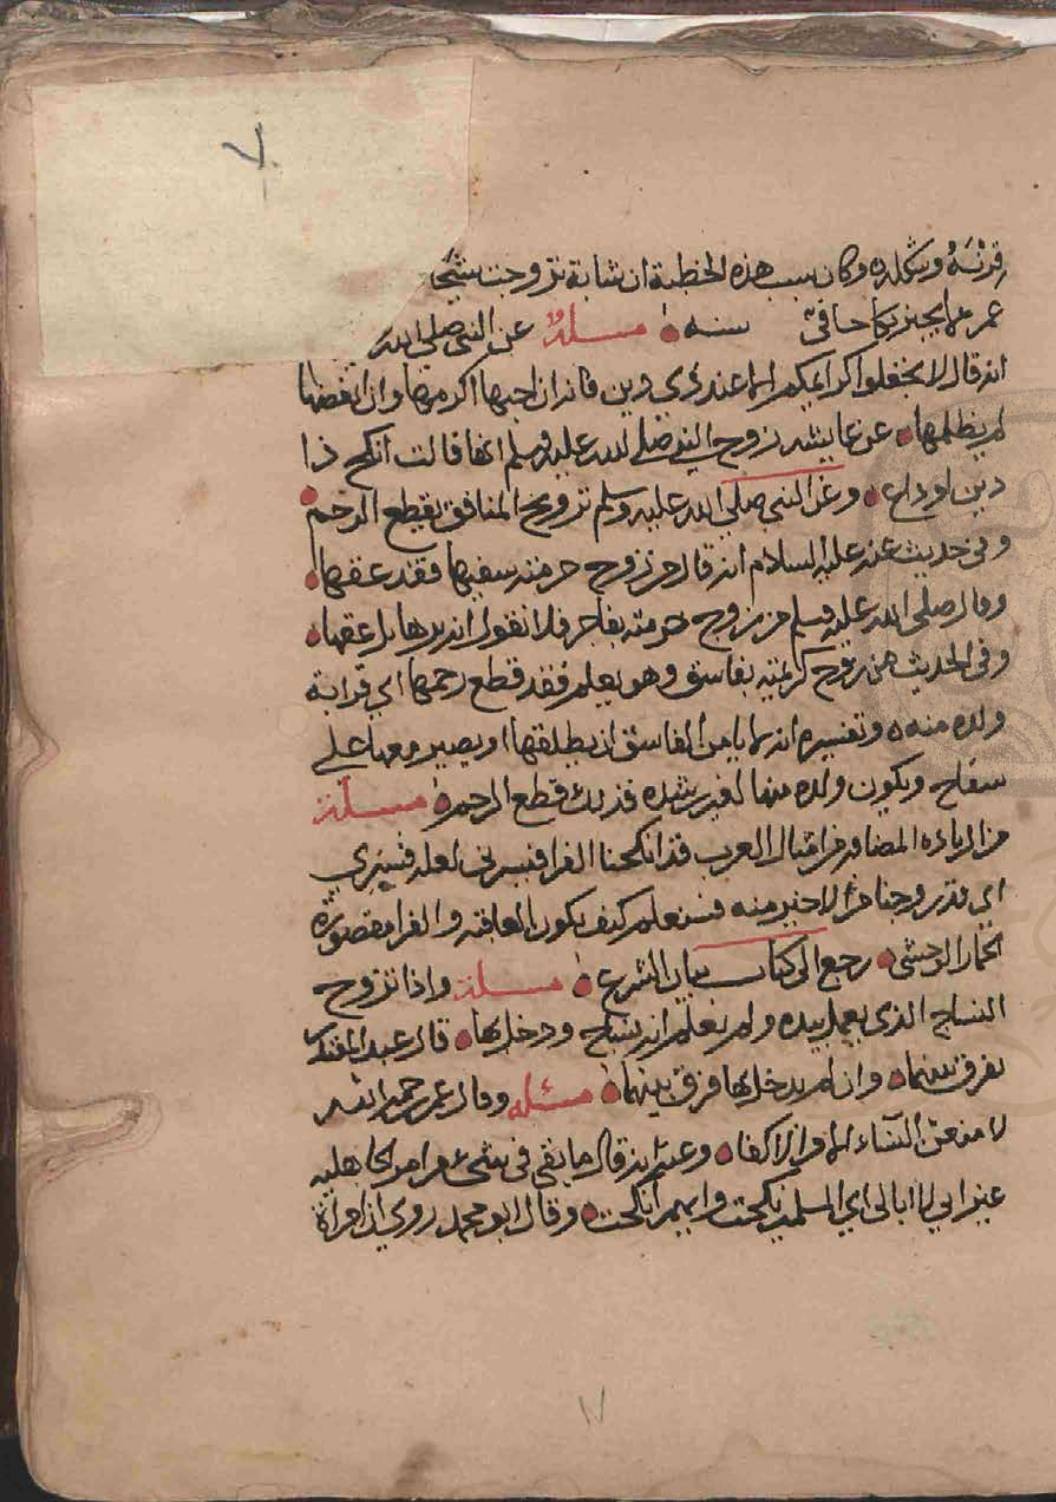 ٧
قرنه وشكله وكان سبب هذه الخطبة ان شابة تزوجت شيخا
عمر سنه ٥ مسئلة عن النبي صلى الله
انه قال لا تجعلوا كرائمكم الا عند ذي دين فانه ان احبها اكرمها وان ابغضها
لم يظلمها ٥ عن عايشه زوج النبي صلى الله عليه وسلم انها قالت انكح ذا
دين اوداع ٥ وعن النبي صلى الله عليه وسلم تزويج المنافق يقطع الرحم ٥
وفي حديث عنه عليه السلام انه قال من زوج حرمته سفيها فقد عقها ٥
وقال صلى الله عليه وسلم من زوج حرمته بفاجر فلا تقول انه برها بل عقها ٥
وفي الحديث من زوج كريمته بفاسق وهو يعلم فقد قطع رحمها اي قرابة
ولده منه ٥ وتفسيره انه لا يامن الفاسق ان يطلقها او يصير معها على
سفاح ويكون ولده منها لغير رشده فذلك قطع الرحم ٥ مسئلة
من الزياده المضافه من امثال العرب قد انكحنا الفرا فسنرى
اي قد زوجنا من لا خير منه فسنعلم كيف يكون العاقبه والفرا مقصورة
الحمار الوحشي ٥ رجع الى كتاب بيان الشرع ٥ مسئلة واذا تزوج
النساج الذي يعمل بيده ولم تعلم انه نساج ودخل بها ٥ قال عبد المقتدر
يفرق بينهما ٥ وان لم يدخل بها فرق بينهما ٥ مسئله وقال عمر رحمه الله
لا منعن النساء الا من الاكفاء ٥ وعنه انه قال ما بقي في شيء من امر الجاهليه
غير اني لا ابالي اي المسلمين نكحت وايهم انكحت ٥ وقال ابو محمد روي ان امراة
١٧